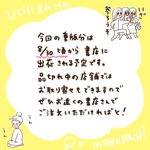 UCHERANO
いざ
参ろうぞ
今回の重版分は
8/30頃から書店に
出荷される予定です。
品切れ中の店舗では
お取り寄せもできますので
ぜひお近くの書店さんで
ご注文いただければと!